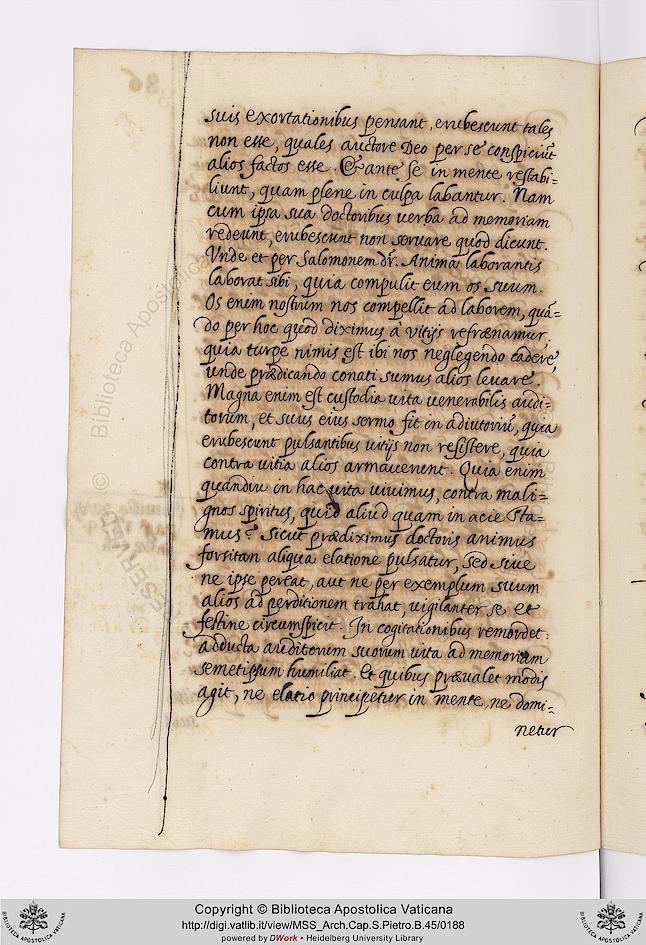 suis exortationibus pensant, erubescunt tales
non esse, quales auctore Deo per se conspiciūt
alios factos esse. Et ante se in mente restabi-
liunt, quam plene in culpa labantur. Nam
cum ipsa sua doctoribus verba ad memoriam
redeunt, erubescunt non servare quod dicunt.
Vnde et per Salomonem dr̄. Anima laborantis
laborat sibi, quia compulit eum os suum.
Os enim nostrum nos compellit ad laborem, quā-
do per hoc quod diximus à vitijs refrænamur,
quia turpe nimis est ibi nos neglegendo cadere,
unde prædicando conati sumus alios levare.
Magna enim est custodia vita venerabilis audi-
torum, et suus eius sermo fit in adiutoriū, quia
erubescunt pulsantibus vitijs non resistere, quia
contra vitia alios armaverunt. Quia enim
quandiu in hac vita vivimus, contra mali-
gnos spiritus, quid aliud quam in acie sta-
mus? Sicut prædiximus doctoris animus
forsitan aliqua elatione pulsatur, sed sive
ne ipse pereat, aut ne per exemplum suum
alios ad perditionem trahat, vigilanter se et
festine circumspicit. In cogitationibus remordet:
adducta auditorum suorum vita ad memoriam
semetipsum humiliat. Et quibus prævalet modis
agit, ne elatio principetur in mente, ne domi-
netur
86
© Biblioteca Apostolica
RESERVED
Copyright © Biblioteca Apostolica Vaticana
http://digi.vatlib.it/view/MSS_Arch.Cap.S.Pietro.B.45/0188
powered by DWork • Heidelberg University Library